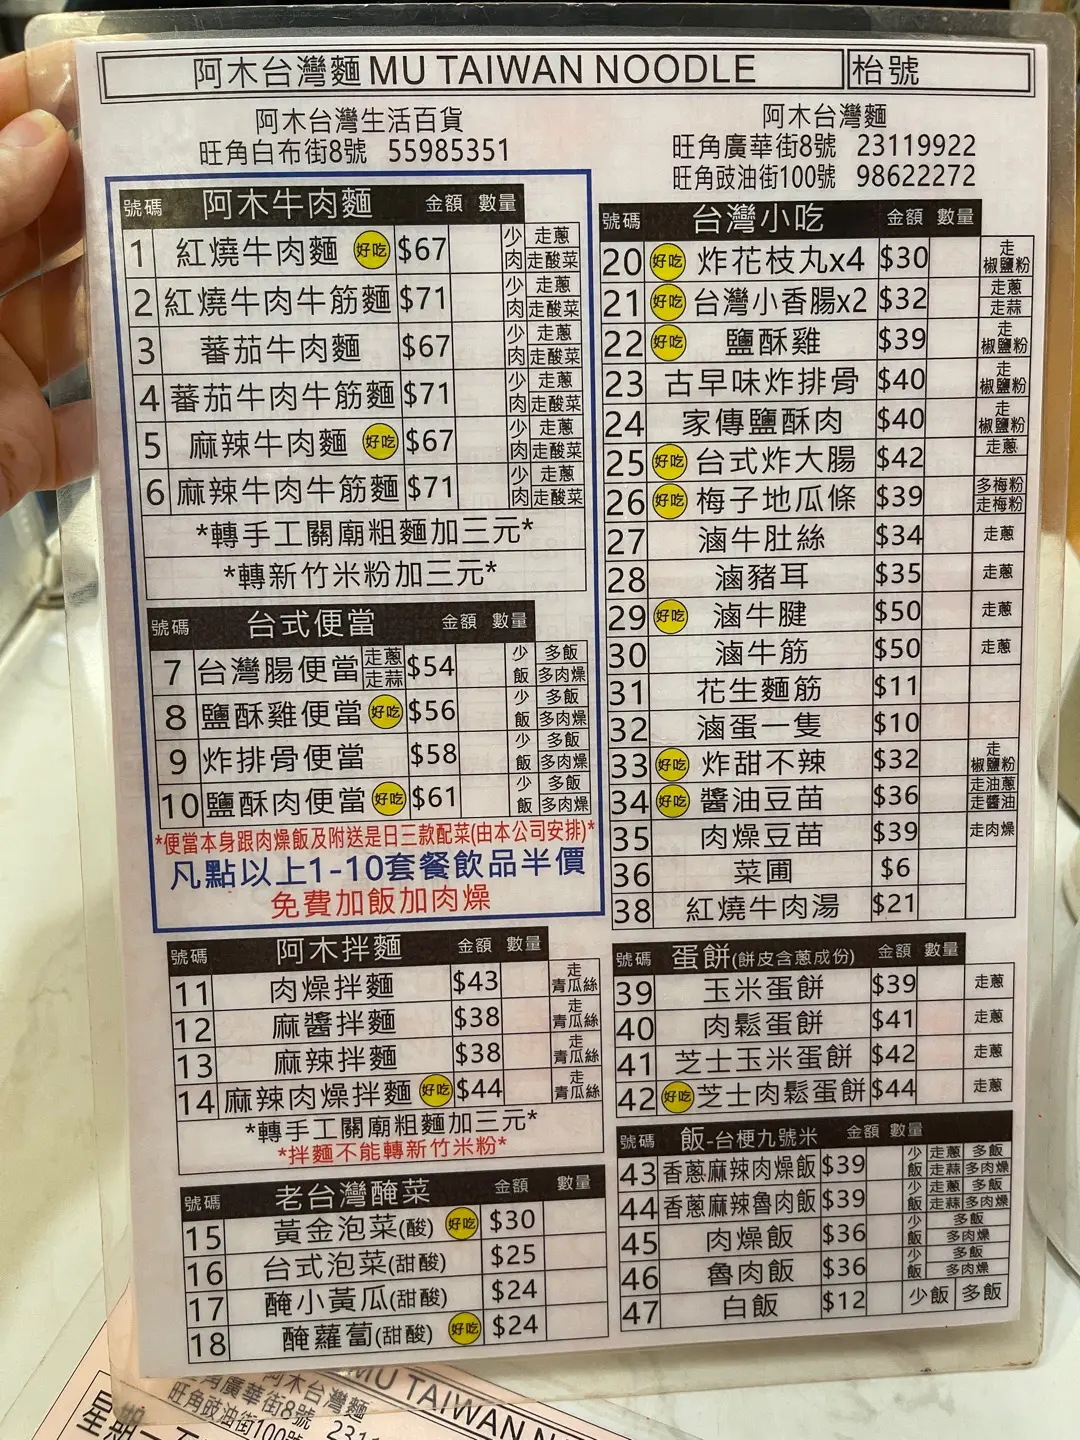 阿木台灣麵MU TAIWAN NOODLE 枱號
阿木台灣生活百貨
旺角白布街8號 55985351
阿木台灣麵
旺角廣華街8號 23119922
旺角豉油街100號 98622272
號碼 阿木牛肉麵 金額 數量
1 紅燒牛肉麵 好吃 $67 少肉 走蔥 走酸菜
2 紅燒牛肉牛筋麵 $71 少肉 走蔥 走酸菜
3 蕃茄牛肉麵 $67 少肉 走蔥 走酸菜
4 蕃茄牛肉牛筋麵 $71 少肉 走蔥 走酸菜
5 麻辣牛肉麵 好吃 $67 少肉 走蔥 走酸菜
6 麻辣牛肉牛筋麵 $71 少肉 走蔥 走酸菜
*轉手工關廟粗麵加三元*
*轉新竹米粉加三元*
號碼 台式便當 金額 數量
7 台灣腸便當 走蔥 走蒜 $54 少飯 多飯 多肉燥
8 鹽酥雞便當 好吃 $56 少飯 多飯 多肉燥
9 炸排骨便當 $58 少飯 多飯 多肉燥
10 鹽酥肉便當 好吃 $61 少飯 多飯 多肉燥
*便當本身跟肉燥飯及附送是日三款配菜(由本公司安排)*
凡點以上1-10套餐飲品半價
免費加飯加肉燥
號碼 阿木拌麵 金額 數量
11 肉燥拌麵 $43 走青瓜絲
12 麻醬拌麵 $38 走青瓜絲
13 麻辣拌麵 $38 走青瓜絲
14 麻辣肉燥拌麵 好吃 $44 走青瓜絲
*轉手工關廟粗麵加三元*
*拌麵不能轉新竹米粉*
號碼 老台灣醃菜 金額 數量
15 黃金泡菜(酸) 好吃 $30
16 台式泡菜(甜酸) $25
17 醃小黃瓜(甜酸) $24
18 醃蘿蔔(甜酸) 好吃 $24
號碼 台灣小吃 金額 數量
20 好吃 炸花枝丸x4 $30 走椒鹽粉
21 好吃 台灣小香腸x2 $32 走蔥 走蒜
22 好吃 鹽酥雞 $39 走椒鹽粉
23 古早味炸排骨 $40 走椒鹽粉
24 家傳鹽酥肉 $40 走椒鹽粉
25 好吃 台式炸大腸 $42 走蔥
26 好吃 梅子地瓜條 $39 多梅粉 走梅粉
27 滷牛肚絲 $34 走蔥
28 滷豬耳 $35 走蔥
29 好吃 滷牛腱 $50 走蔥
30 滷牛筋 $50 走蔥
31 花生麵筋 $11
32 滷蛋一隻 $10
33 好吃 炸甜不辣 $32 走椒鹽粉
34 好吃 醬油豆苗 $36 走油蔥 走醬油
35 肉燥豆苗 $39 走肉燥
36 菜圃 $6
38 紅燒牛肉湯 $21
號碼 蛋餅(餅皮含蔥成份) 金額 數量
39 玉米蛋餅 $39 走蔥
40 肉鬆蛋餅 $41 走蔥
41 芝士玉米蛋餅 $42 走蔥
42 好吃 芝士肉鬆蛋餅 $44 走蔥
號碼 飯-台梗九號米 金額 數量
43 香蔥麻辣肉燥飯 $39 少飯 走蔥 多飯 走蒜 多肉燥
44 香蔥麻辣魯肉飯 $39 少飯 走蔥 多飯 走蒜 多肉燥
45 肉燥飯 $36 少飯 多飯 多肉燥
46 魯肉飯 $36 少飯 多飯 多肉燥
47 白飯 $12 少飯 多飯
MU TAIWAN N
阿木台灣麵
廣華街8號 231
旺角豉油街100號